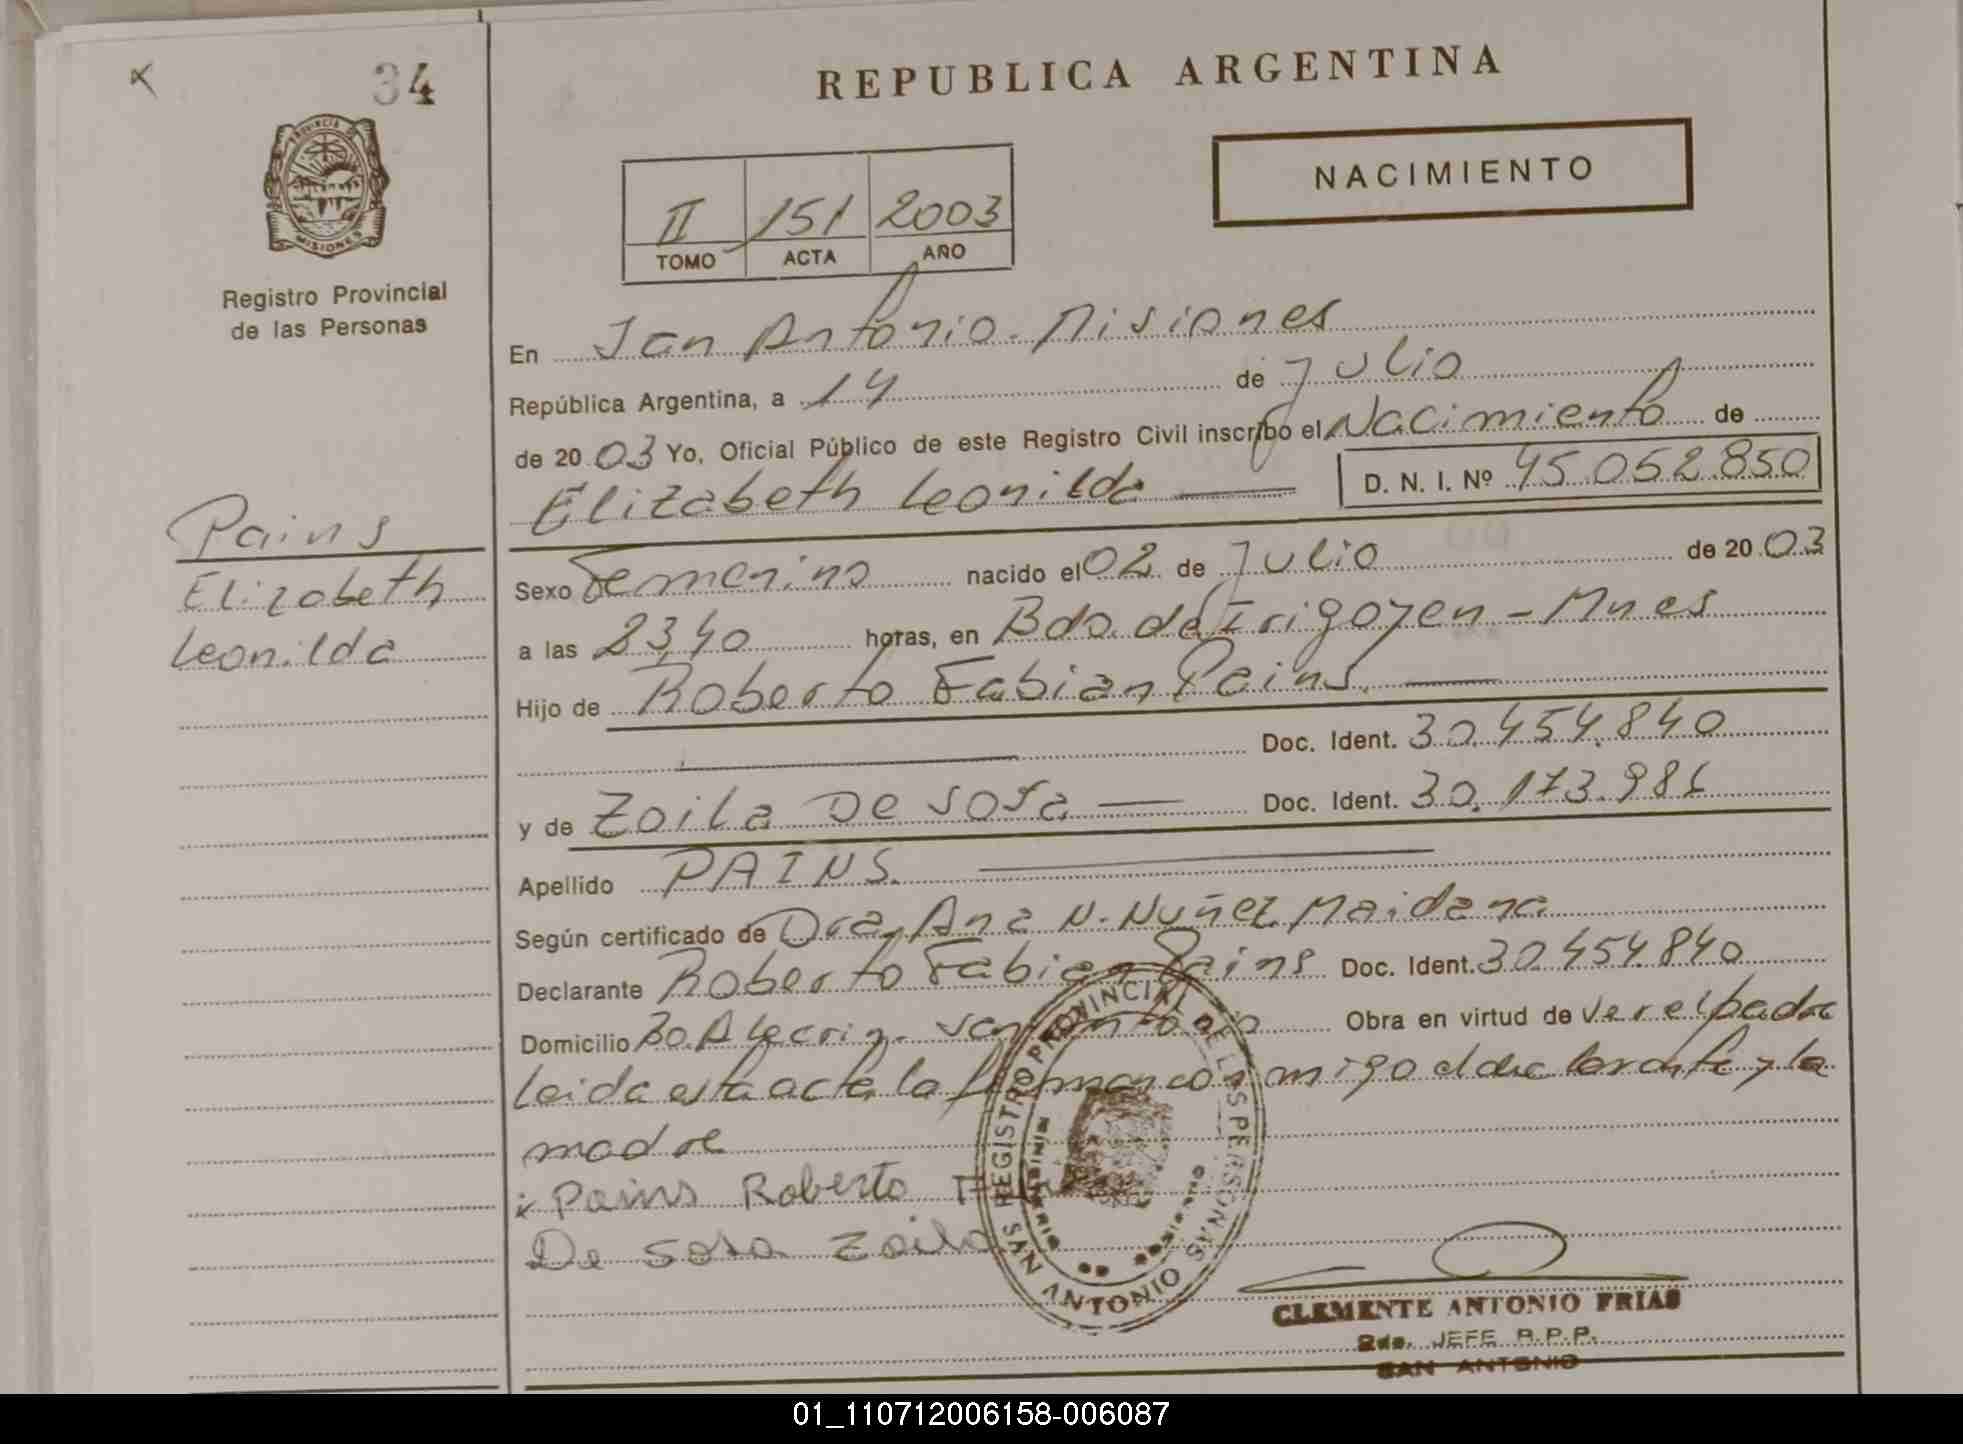 34
REPUBLICA ARGENTINA
NACIMIENTO
PROVINCIA DE
MISIONES
Registro Provincial
de las Personas
II 151 2003
TOMO ACTA AÑO
En San Antonio. Misiones
República Argentina, a 14 de Julio
de 2003 Yo, Oficial Público de este Registro Civil inscribo el Nacimiento de
Elizabeth Leonilda D. N. I. Nº 45.052.850
Pains
Elizabeth
Leonilda
Sexo Femenino nacido el 02 de Julio de 2003
a las 23,40 horas, en Bdo. de Irigoyen - Mnes
Hijo de Roberto Fabian Pains
Doc. Ident. 30.454.840
y de Zoila De Sosa Doc. Ident. 30.173.986
Apellido PAINS.
Según certificado de Dra. Ana N. Nuñez Maidana
Declarante Roberto Fabian Pains Doc. Ident. 30.454.840
Domicilio Bo. Alecrin. San Antonio Obra en virtud de ver el padre
leida esta acta la firman conmigo el declarante y la
madre
Pains Roberto F
De Sosa Zoila
REGISTRO PROVINCIAL DE LAS PERSONAS
SAN ANTONIO
MISIONES
CLEMENTE ANTONIO FRIAS
2do. JEFE R.P.P.
SAN ANTONIO
01_110712006158-006087